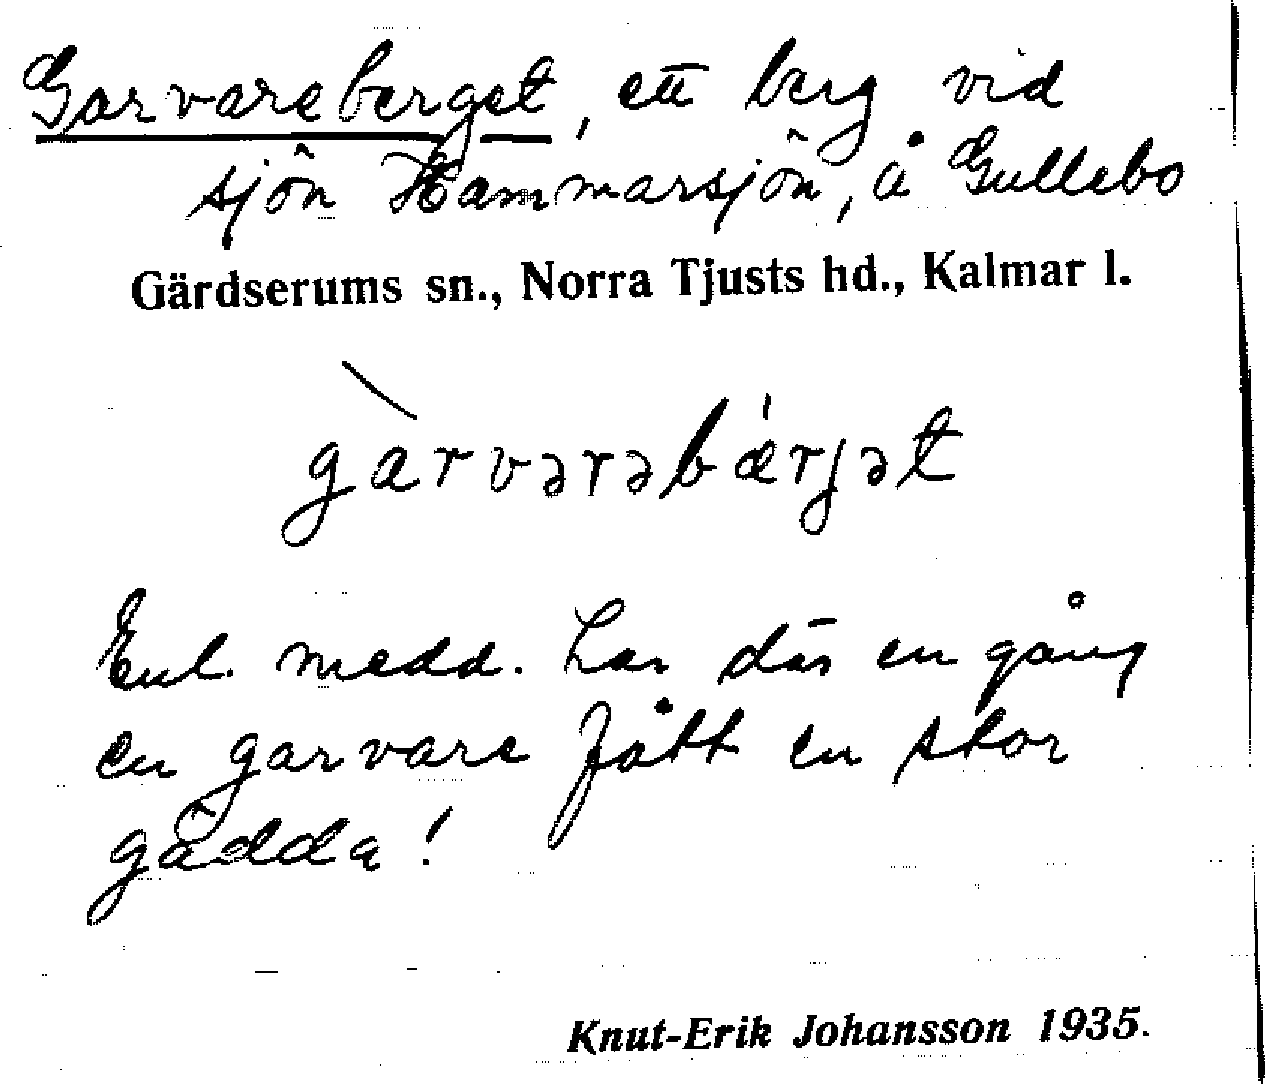 Garvareberget, ett berg vid
sjön Hammarsjön, å Gullebo
Gärdserums sn., Norra Tjusts hd., Kalmar l.
gàrvarəbǽrjət
Enl. medd. har där en gång
en garvare fått en stor
gädda!
Knut-Erik Johansson 1935.